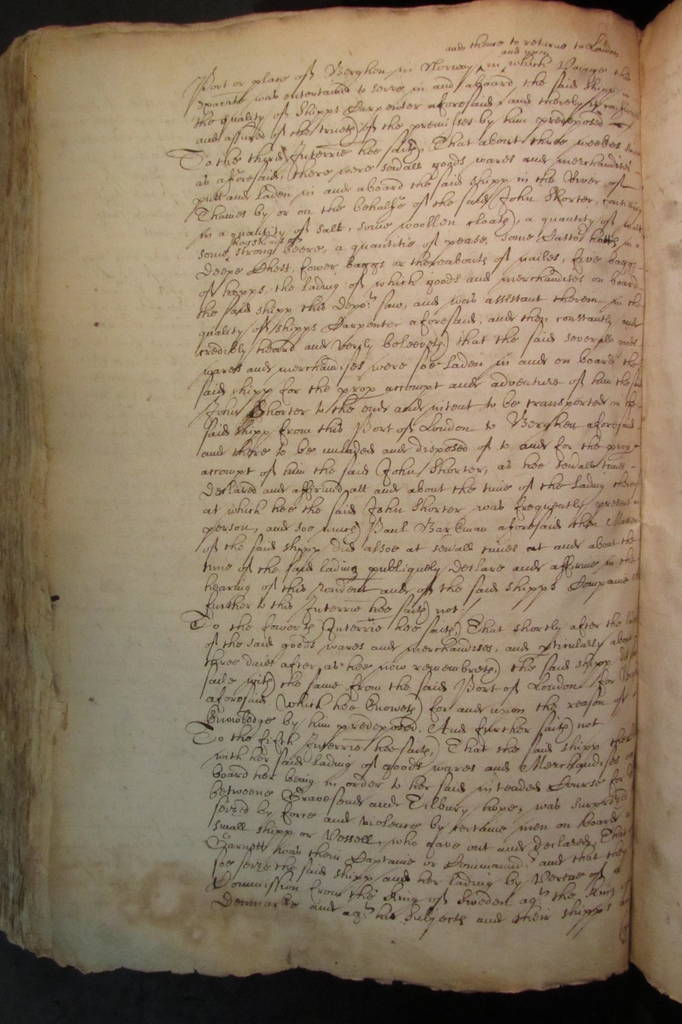 and thence to returne to London
and upon
Port or place of Berghen in Norway in which Voyage the
was entertained to serve in and aboard the said shipp in
the quality of Shipps Carpenter aforesaid and thereby
and assured of the trueth of the premisses by him predeposed
To the third Interrie hee saith That about three weekes
as aforesaid, there were severall goods wares and merchandizes
putt and laden in and aboard the said shipp in the River of
Thames by or on the behalfe of the said John Shorter,
in a quantity of salt, some woollen cloath, a quantity of
hogsheads of
some strong beere, a quantitie of pease, some Castor hatts in a
deepe Chest, fower baggs or thereabouts of nailes, five baggs
of hopps, the lading of which goods and merchandizes on board
the said shipp this depot saw, and was assistant therein in the
quality of shipps Carpenter aforesaid, and then constantly and
credibly heard and verily beleeveth that the said severall goods
wares and merchandizes were soe laden in and on board the
said shipp for the prop accompt and adventure of him the
John Shorter to the end and intent to be transported in the
said shipp from this Port of London to Berghen aforesaid
and there to be unladed and disposed of to and for the prop
accompt of him the said John Shorter, as hee severall times
declared and affirmed, att and about the time of the lading thereof
at which hee the said John Shorter was frequently present in
person, and soe much Paul Barkman aforesaid then Master
of the said shipp did alsoe at severall times at and about the
time of the said lading publiquely declare and affirme in the
hearing of this rendent and of the said shipps Companie
further to this Interrie hee saith not
To the fowerth Interrie hee saith That shortly after the
of the said goods wares and merchandizes, and pticularly about
three daies after, as hee now remembreth, the said shipp did
saile with the same from the said Port of London for
aforesaid which hee knoweth for and upon the reason of
knowledge by him predeposed. And further saith not
To the fifth Interrie hee saith, That the said shipp
with her said lading of goods wares and Merchandizes on
board her being in order to her said intended Course for
betweene Gravesend and Tilbury hope, was surprized
seized by force and violence by certaine men on board
small shipp or Vessell, who gave out and declared, That
was their Captaine or Command and that they
soe seize the said shipp and her lading by Vertue of a
Commission from the King of Sweden agt the King of
Denmarke and agt his Subjects and their shipps